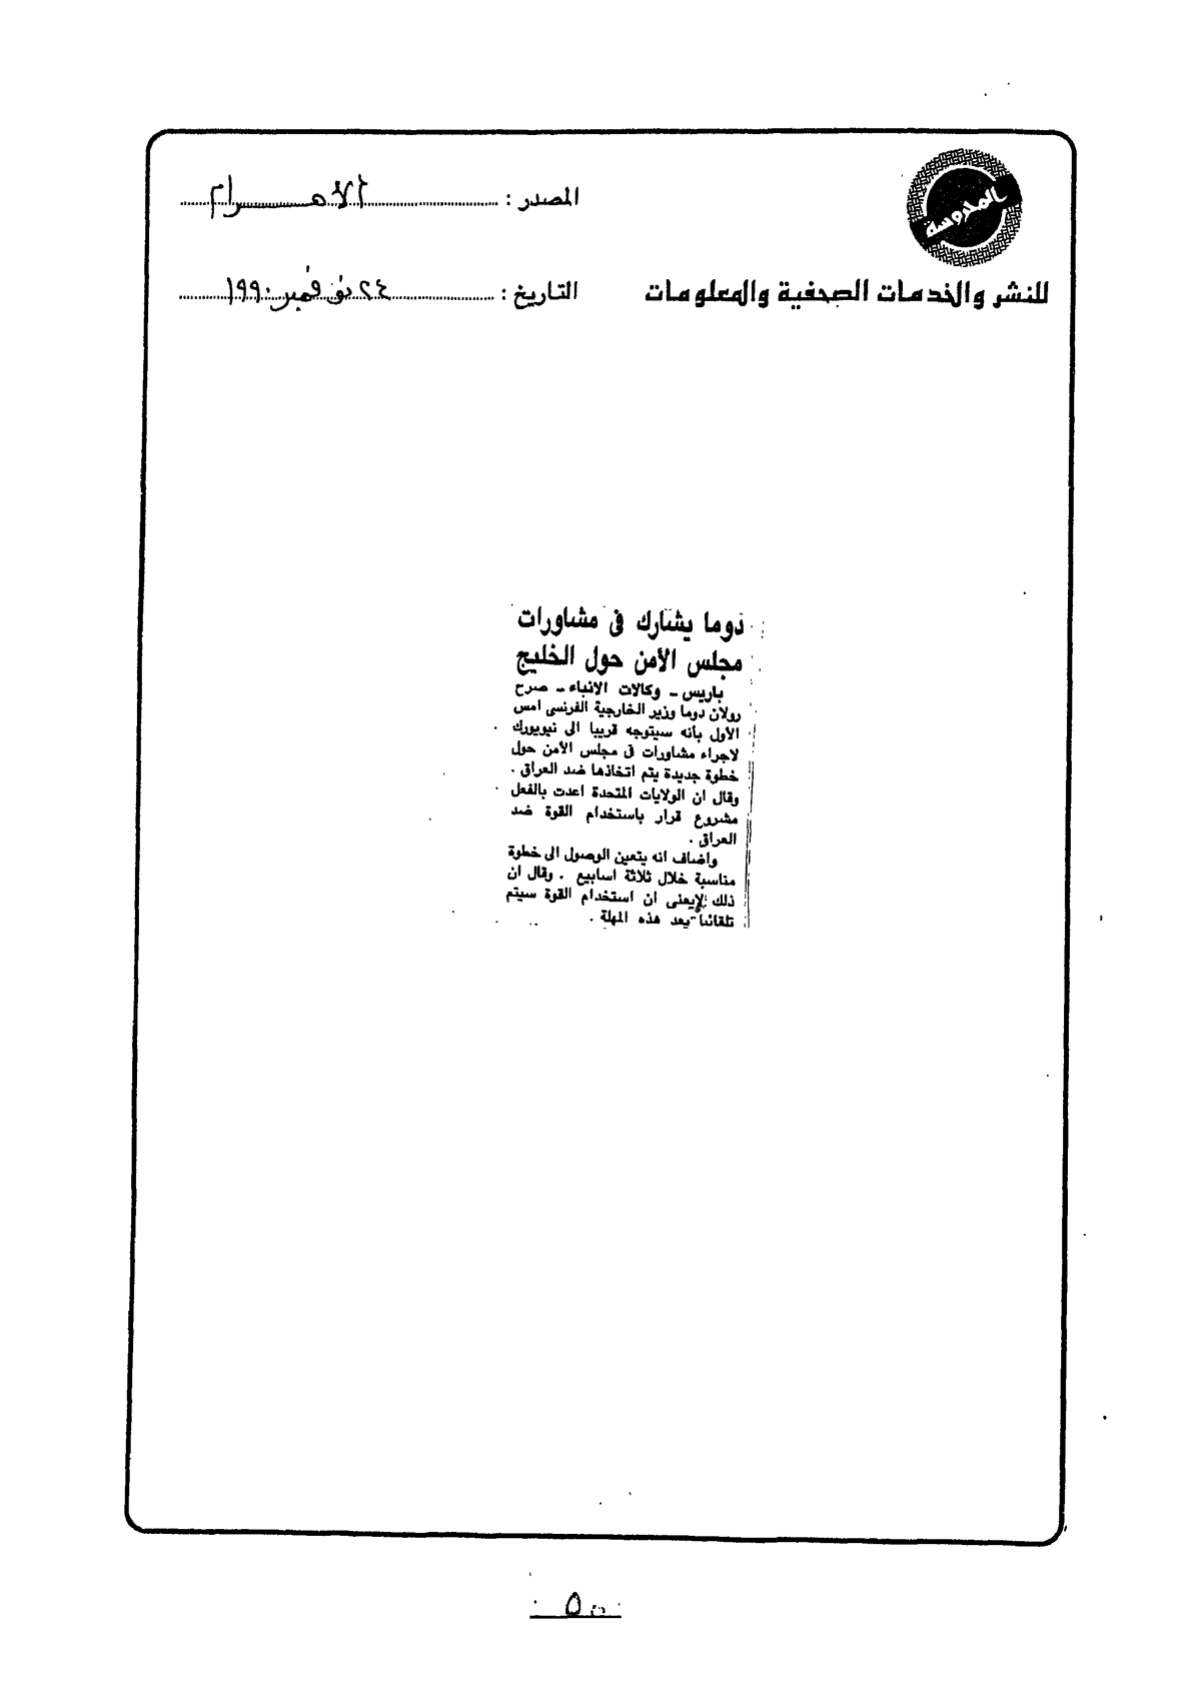 المحروسة
للنشر والخدمات الصحفية والمعلومات
المصدر : الأهرام
التاريخ : ٢٤ نوفمبر ١٩٩٠
دوما يشارك فى مشاورات
مجلس الأمن حول الخليج
باريس - وكالات الانباء - صرح
رولان دوما وزير الخارجية الفرنسى امس
الأول بأنه سيتوجه قريبا الى نيويورك
لاجراء مشاورات فى مجلس الأمن حول
خطوة جديدة يتم اتخاذها ضد العراق .
وقال ان الولايات المتحدة اعدت بالفعل
مشروع قرار باستخدام القوة ضد
العراق .
واضاف انه يتعين الوصول الى خطوة
مناسبة خلال ثلاثة اسابيع . وقال ان
ذلك لايعنى ان استخدام القوة سيتم
تلقائيا بعد هذه المهلة .